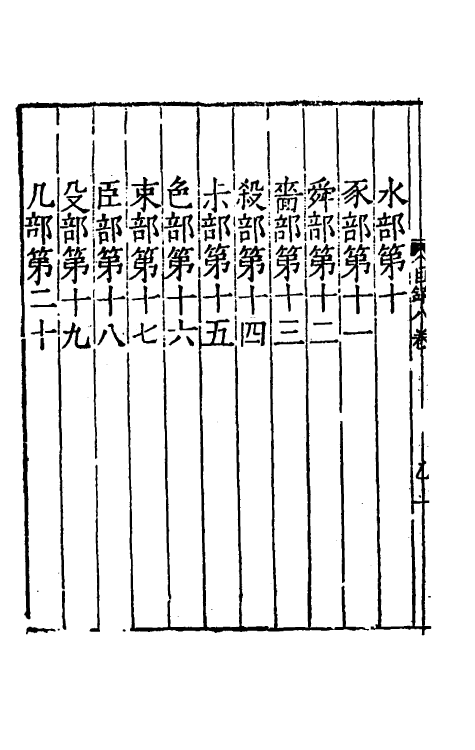 水部第十
豕部第十一
舜部第十二
嗇部第十三
殺部第十四
尗部第十五
色部第十六
束部第十七
臣部第十八
殳部第十九
几部第二十
目錄八卷